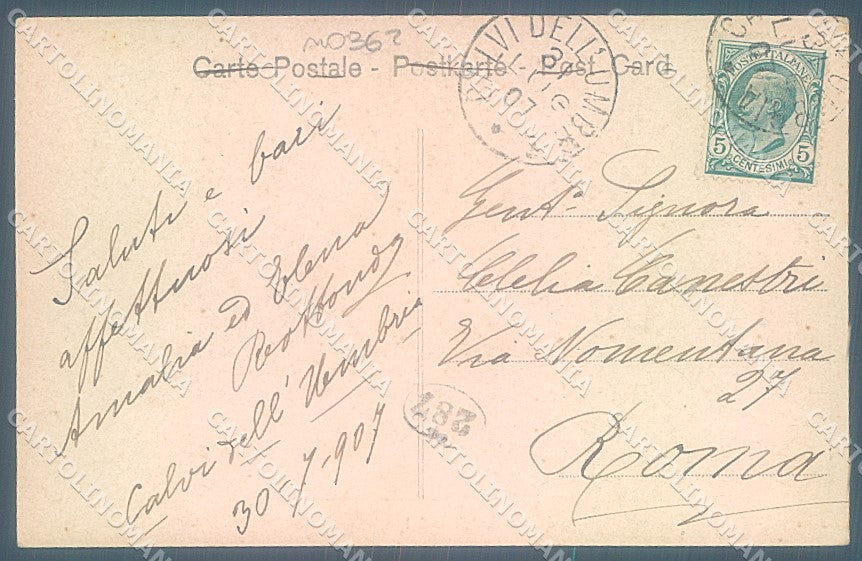 Carte Postale - Postkarte - Post Card
CALVI DELL'UMBRIA
LUG
07
POSTE ITALIANE
5 5
CENTESIMI
Saluti e baci
affettuosi
Amalia ed Elena
Calvi dell'Umbria
30-7-907
Gent. Signora
Clelia Canestri
Via Nomentana
27
Roma
287
CARTOLINOMANIA